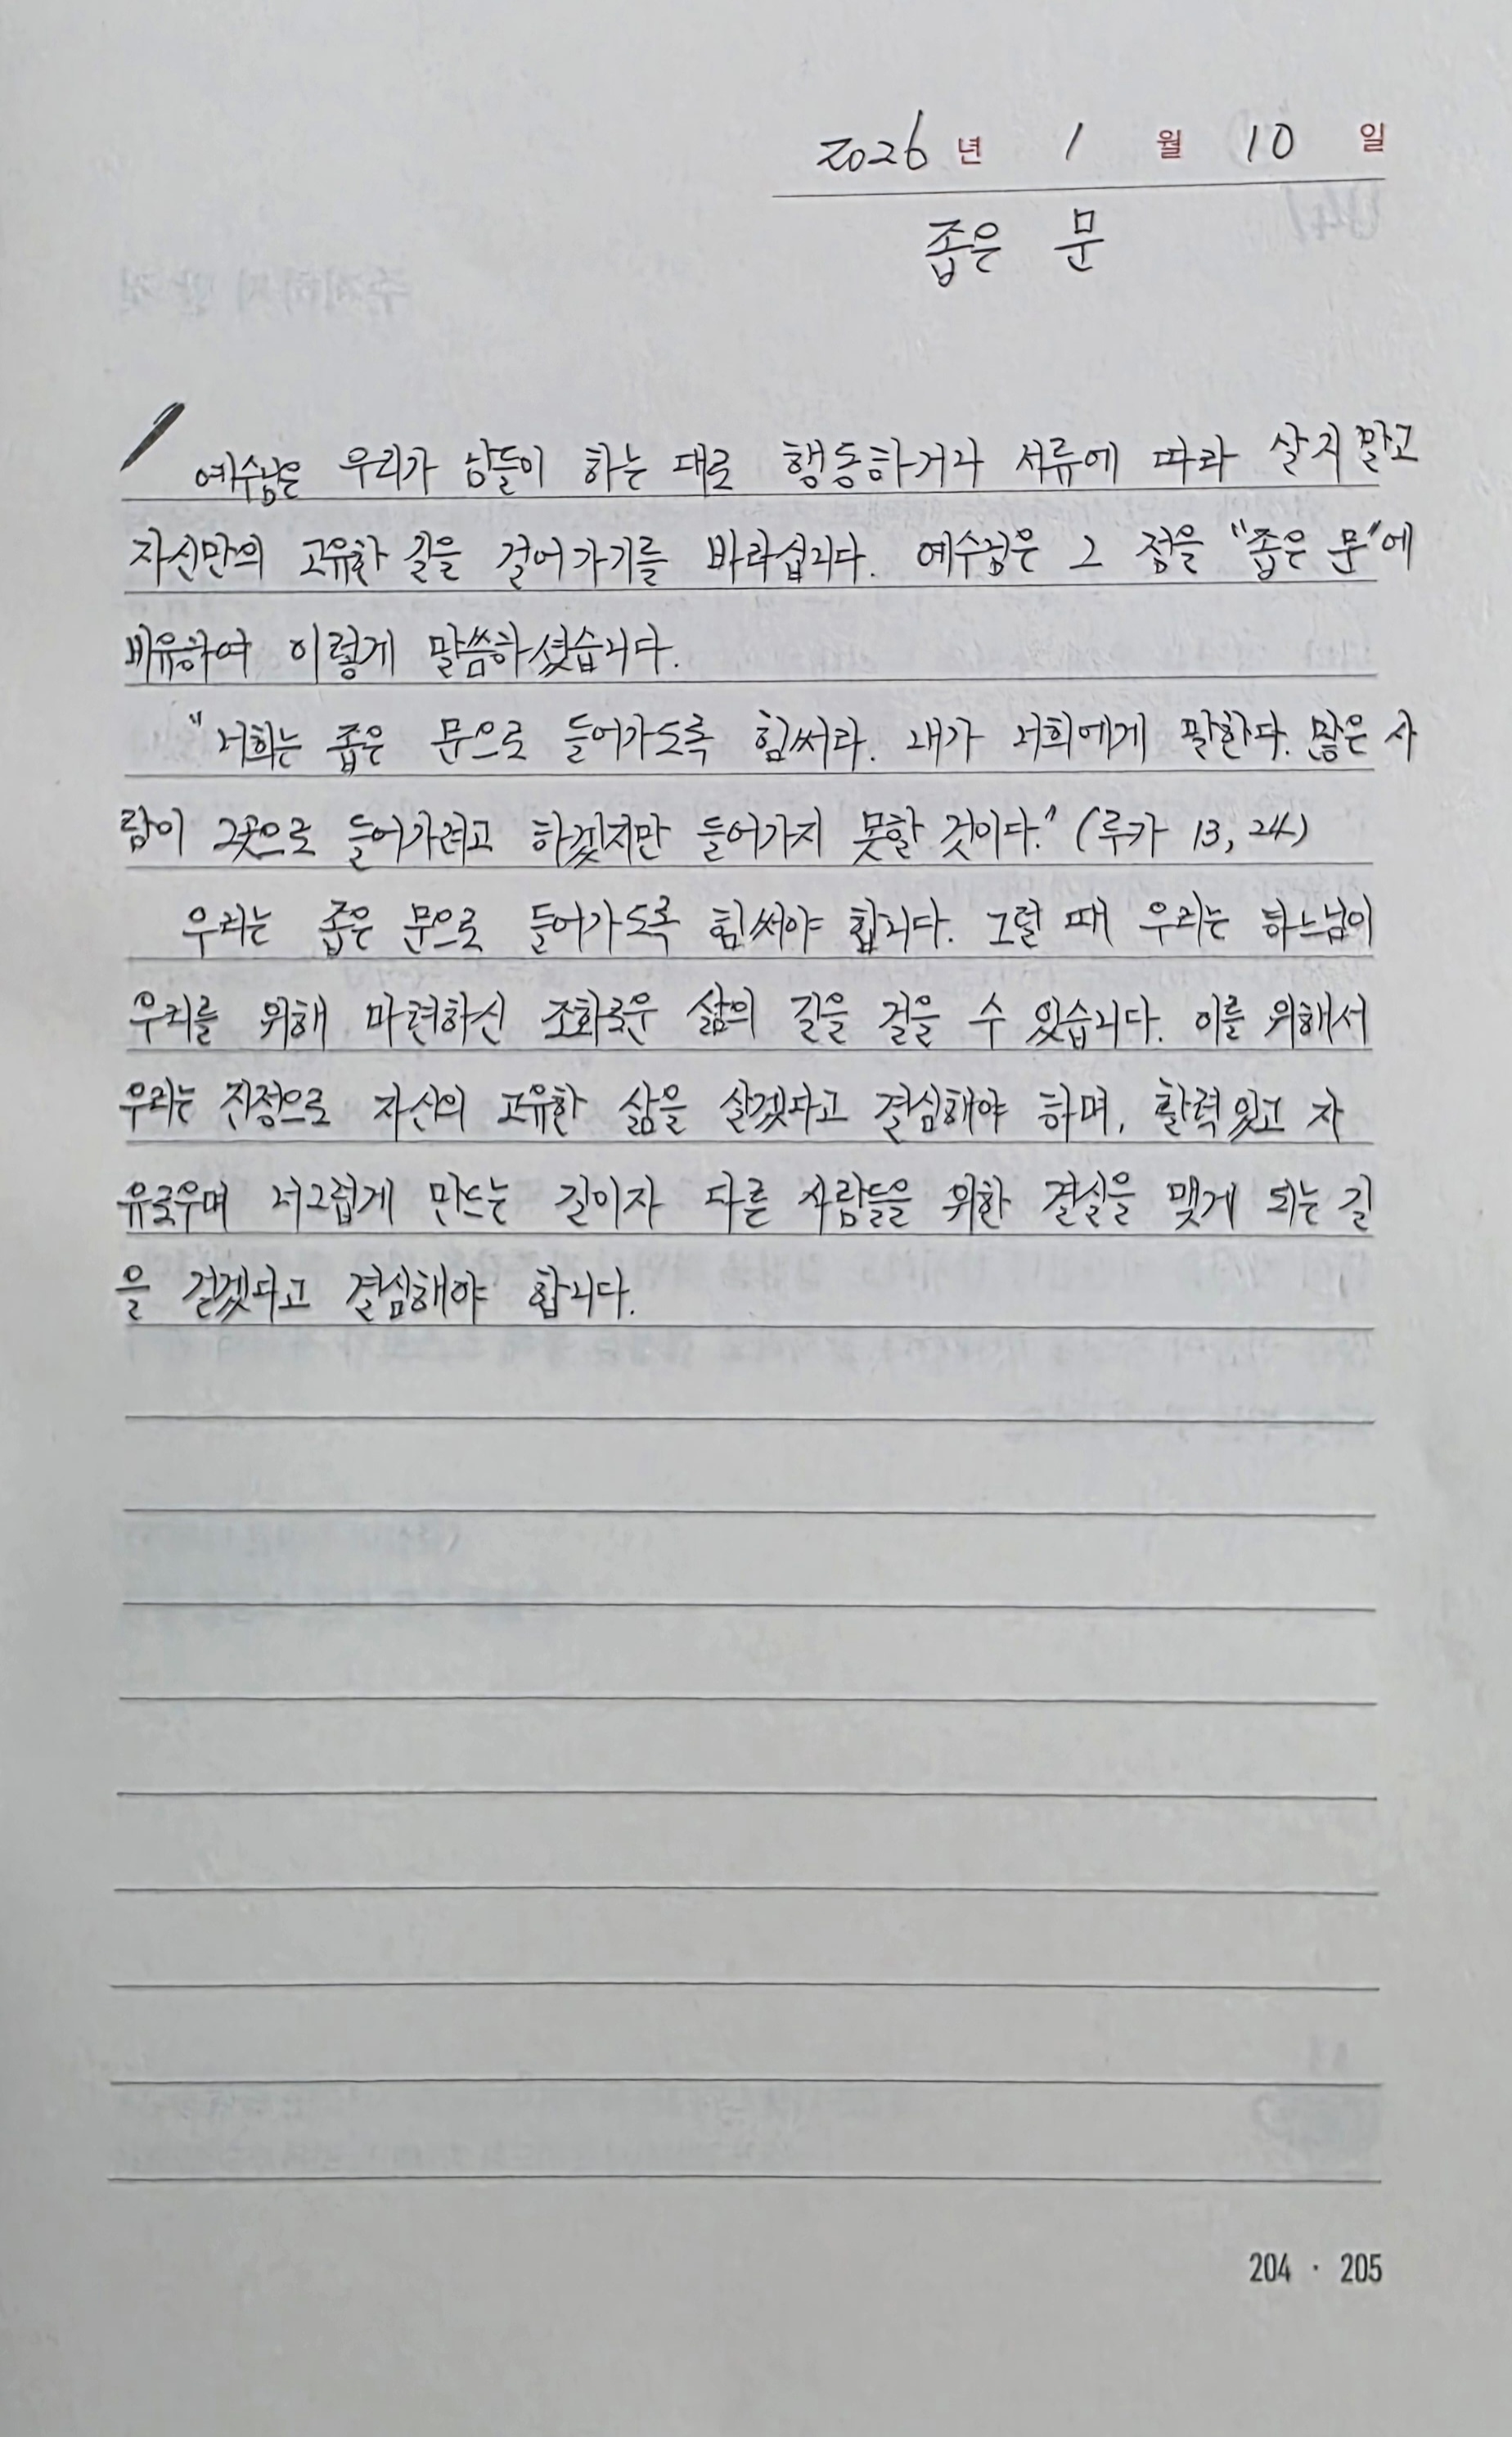 2026년 1월 10일
좁은 문
예수님은 우리가 남들이 하는 대로 행동하거나 서류에 따라 살지 말고
자신만의 고유한 길을 걸어가기를 바라십니다. 예수님은 그 점을 "좁은 문"에
비유하여 이렇게 말씀하셨습니다.
"너희는 좁은 문으로 들어가도록 힘써라. 내가 너희에게 말한다. 많은 사
람이 그곳으로 들어가려고 하겠지만 들어가지 못할 것이다." (루카 13, 24)
우리는 좁은 문으로 들어가도록 힘써야 합니다. 그럴 때 우리는 하느님이
우리를 위해 마련하신 조화로운 삶의 길을 걸을 수 있습니다. 이를 위해서
우리는 진정으로 자신의 고유한 삶을 살겠다고 결심해야 하며, 활력있고 자
유로우며 너그럽게 만드는 길이자 다른 사람들을 위한 결실을 맺게 되는 길
을 걷겠다고 결심해야 합니다.
204 · 205